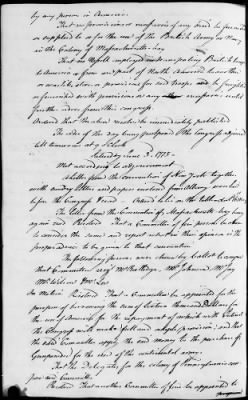 by any person in America.
That no provisions or necessaries of any kind be furnished
or supplied to or for the use of the British Army or Navy
in the Colony of Massachusetts-bay
That no Vessel employed in transporting British troops
to America or from one part of North America to another
or warlike stores or provisions for said troops be freighted
or furnished with provisions or any necessaries until
further orders from this congress.
Ordered that the above resolve be immediately published
The order of the day being postponed the Congress adjourned
till tomorrow at 9 o'Clock
Saturday June 3. 1775.
Met according to adjournment
A letter from the convention of New York together
with sundry letters and papers enclosed from Albany were laid
before the Congress & read - Ordered to lie on the table
The letter from the Convention of Massachusetts bay being
again read Resolved That a Committee of five persons be chosen
to consider the same and report what in their opinion is the
proper answer to be given to that convention
The following persons were chosen by ballot to compose
that Committee. viz Mr Rutledge, Mr Johnson, Mr Jay
Mr Wilson & Mr Lee
On Motion Resolved That a Committee be appointed for the
purpose of borrowing the sum of six thousand Pounds for
the use of America for the repayment of which with Interest
the Congress will make full and ample provision, and that
the said Committee apply the said money to the purchase of
Gunpowder for the use of the continental army.
That the Delegates for the colony of Pennsylvania com-
pose said Committee
Resolved That another Committee of five be appointed to